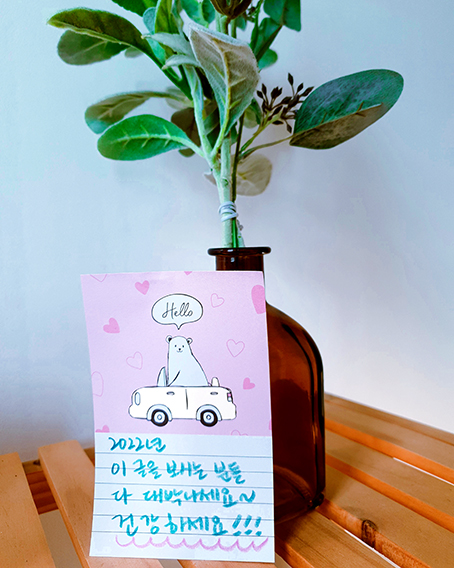 Hello
2022년
이 글을 보시는 분들
다 대박나세요~
건강하세요!!!